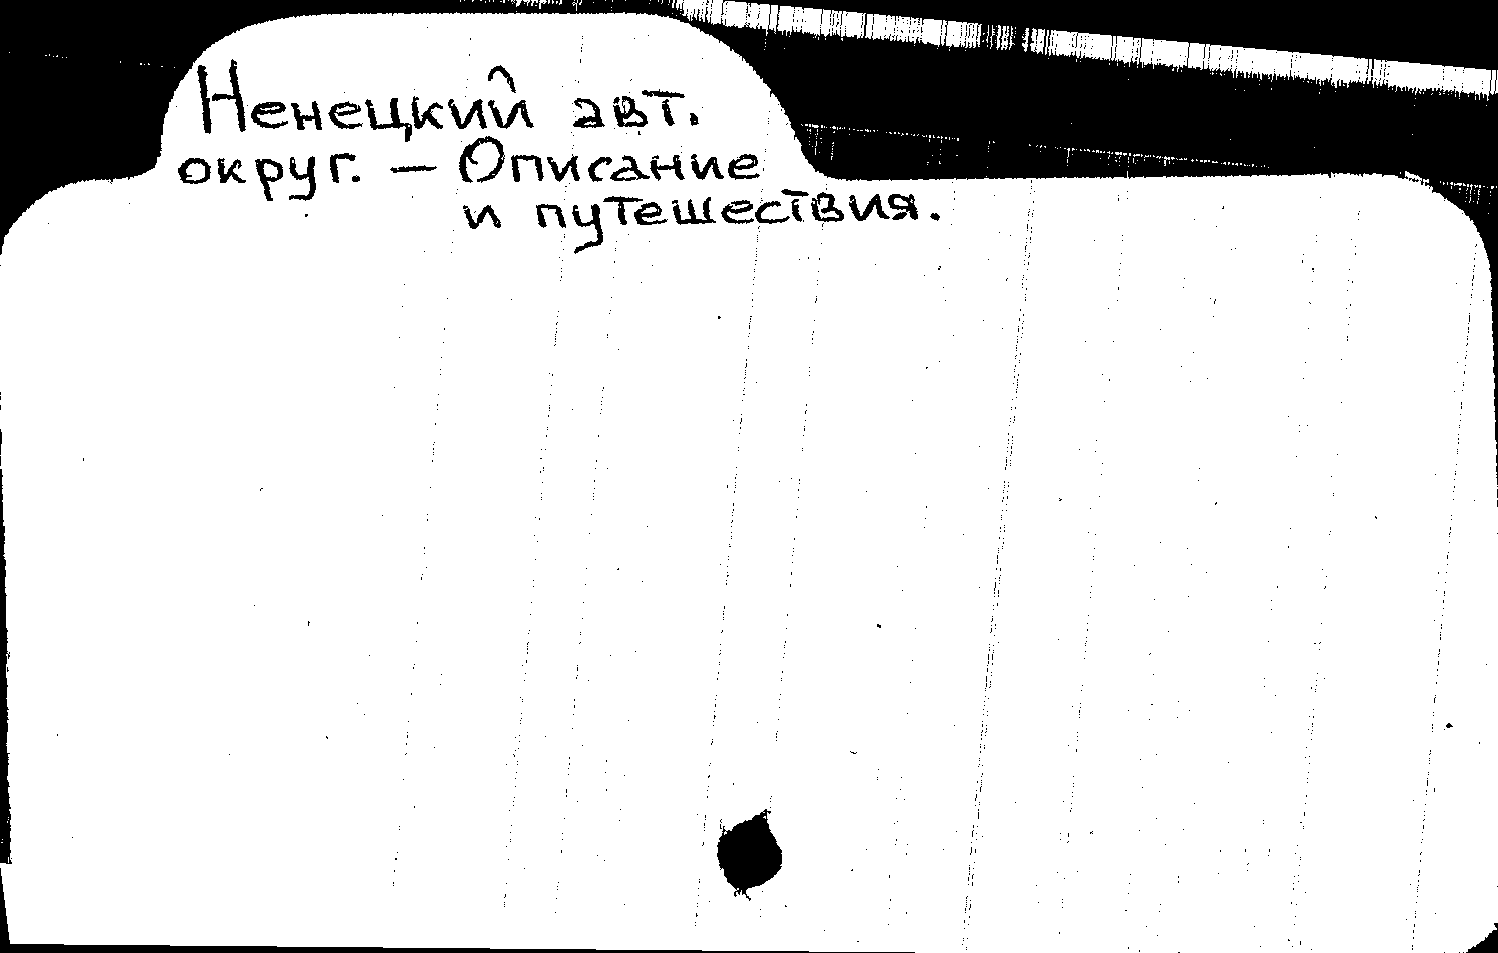 Ненецкий авт.
округ. — Описание
и путешествия.